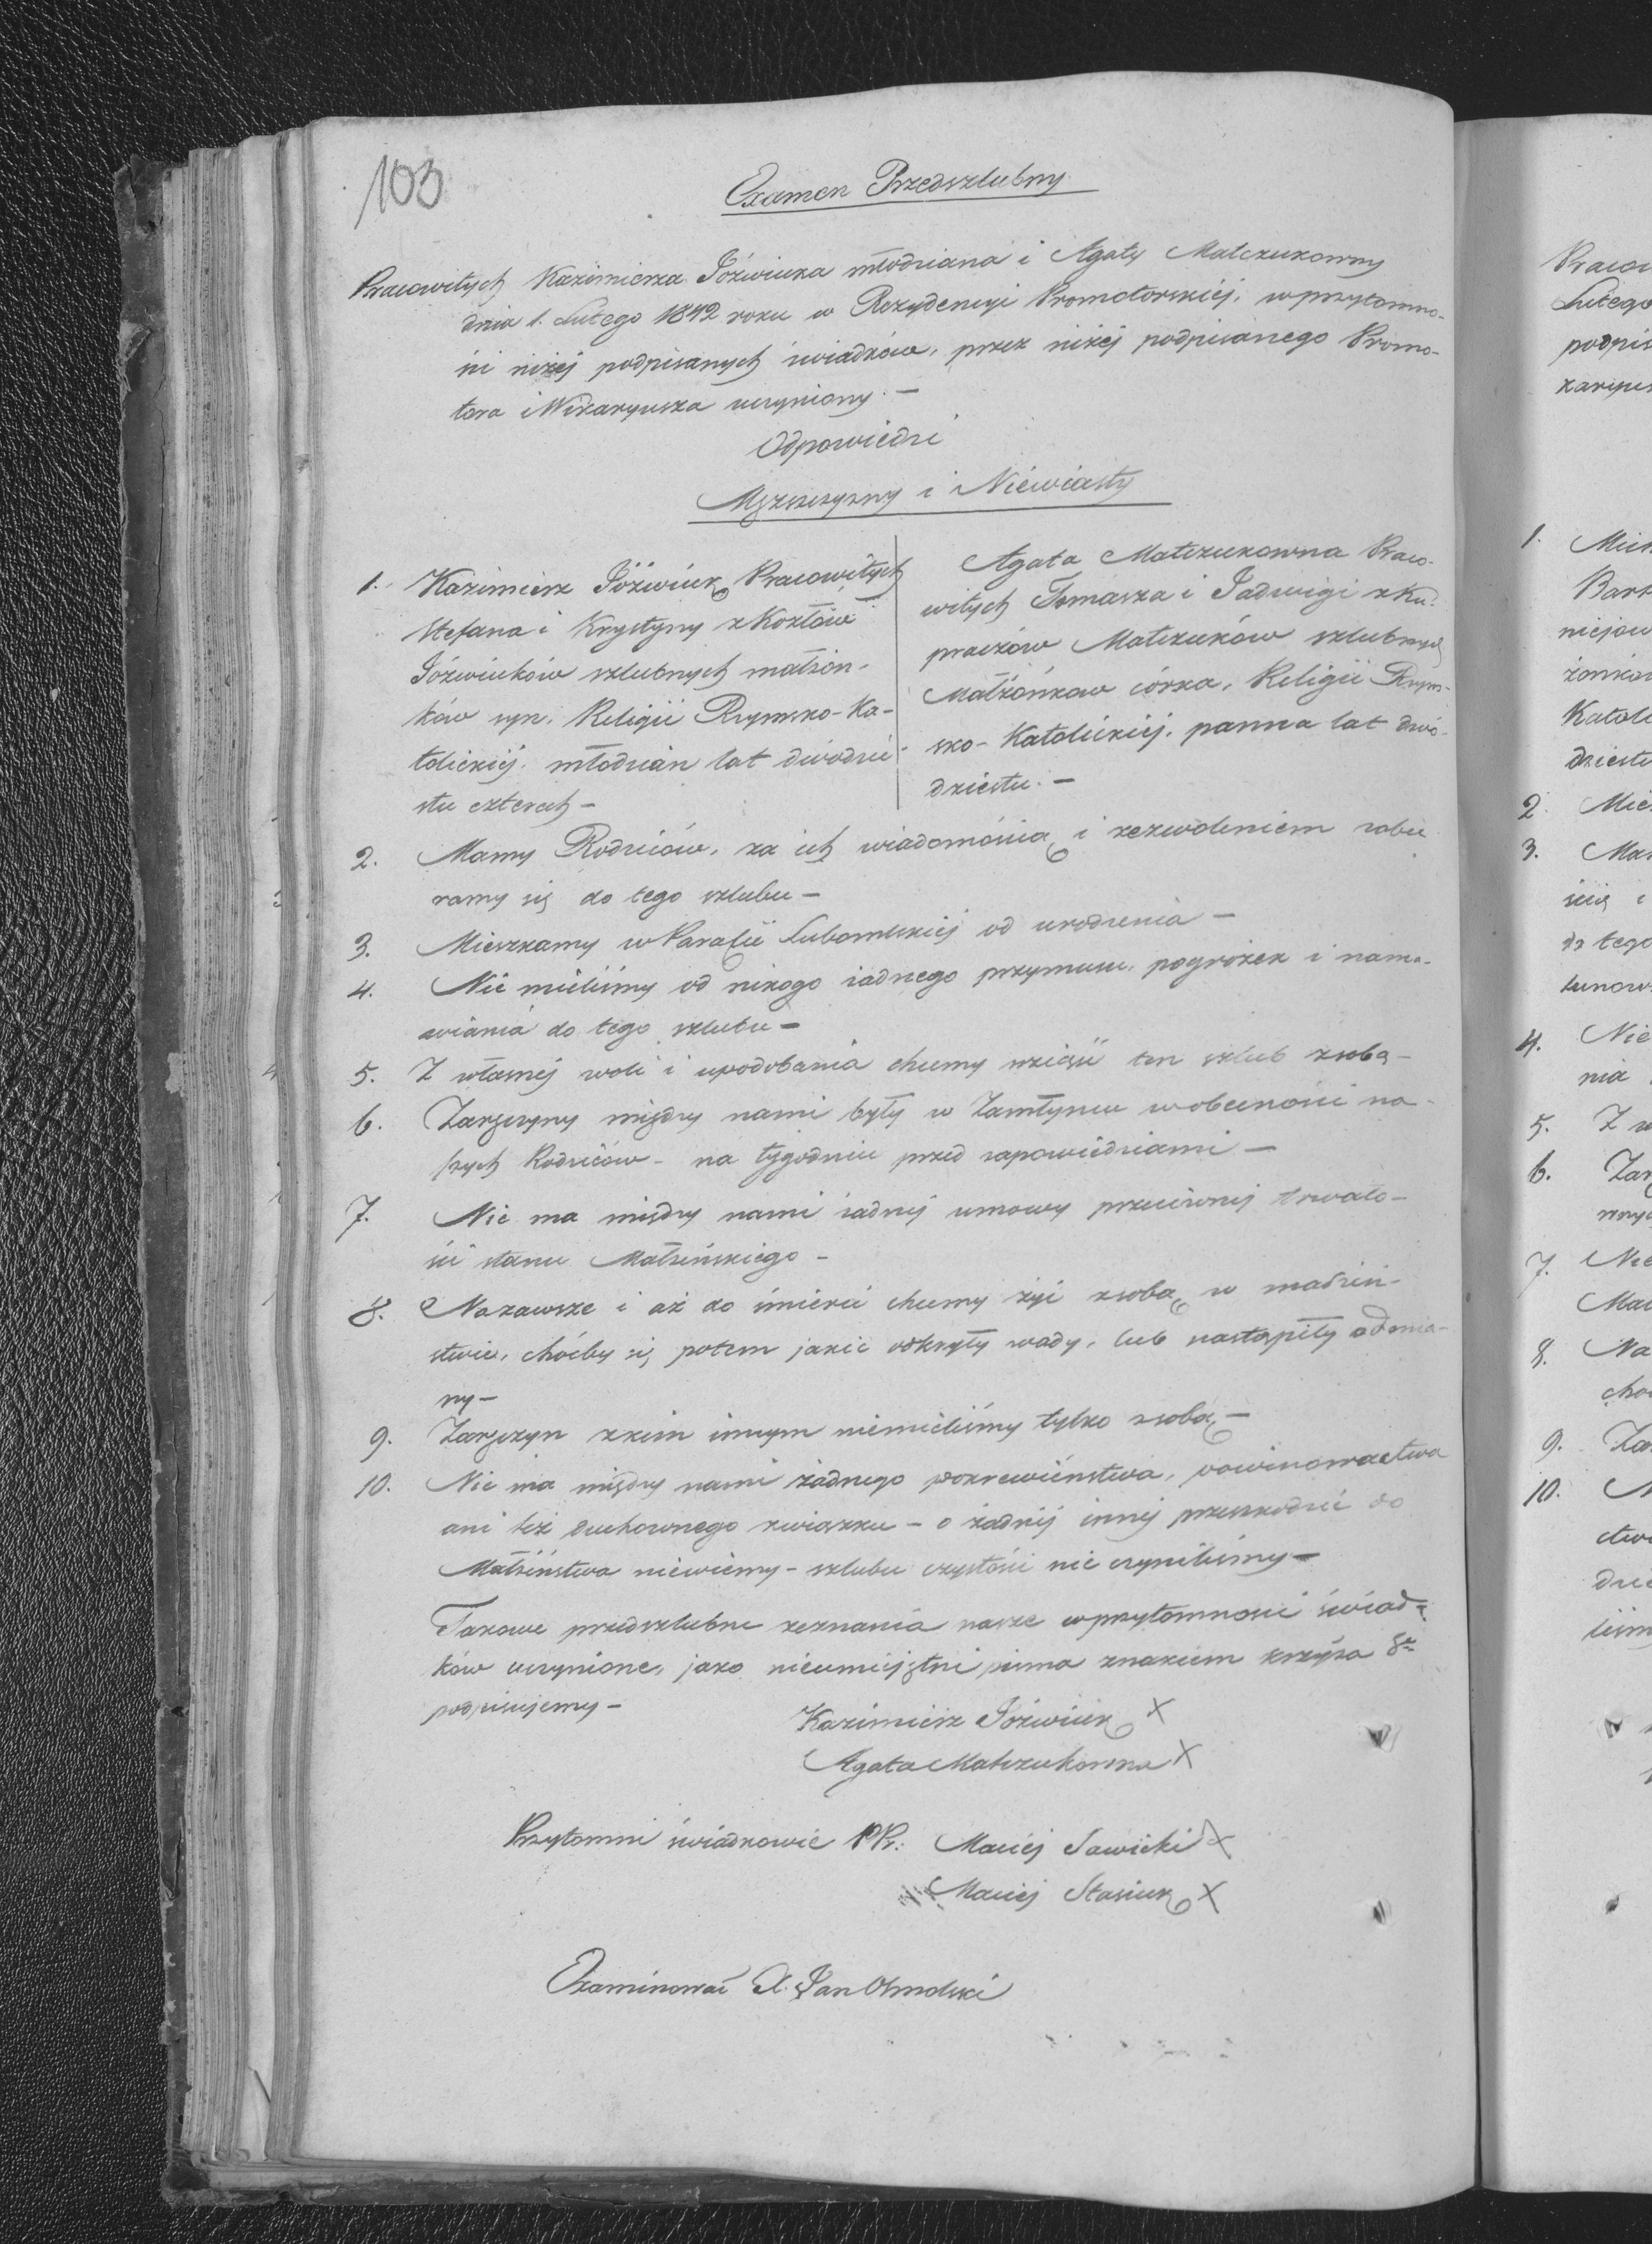 103
Examen Przedszlubny
Pracowitych Kazimierza Jóźwiuka młodziana i Agaty Matczukowny
dnia 1. Lutego 1842 roku w Rezydencyi Promotorskiéj, w przytomno-
ści niżéj podpisanych świadków, przez niżéj podpisanego Promo-
tora i Wikaryusza uczyniony. —
Odpowiedzi
Męzczyzny i Niéwiasty
1. Kazimierz Jóźwiuk Pracowitych
Stefana i Krystyny z Kozłów
Jóźwiuków szlubnych małżon-
ków syn. Religii Rzymsko-Ka-
tolickiéj. młodzian lat dwódzie
stu czterech —
Agata Matczukowna Praco-
witych Tomasza i Jadwigi z Ku-
praczów Matczuków szlubnych
Małżónkow córka, Religii Rzym-
sko-Katolickiéj. panna lat dwó-
dziestu. —
2. Mamy Rodziców, za ich wiadomóścią i zezwoleniem zabie
ramy się do tego szlubu —
3. Mieszkamy w Parafii Lubomlskiéj od urodzenia —
4. Nie mieliśmy od nikogo żadnego przymusu, pogróżek i nama-
wiania do tego szlubu —
5. Z własnéj woli i upodobania chcemy wziąść ten szlub z sobą —
6. Zaręczyny między nami były w Zamłyniu w obecności na-
szych Rodziców — na tygodniu przed zapowiedziami —
7. Nie ma między nami żadnéj umowy przeciwnéj trwało-
ści stanu Małżeńskiego —
8. Nazawsze i aż do śmierci chcemy żyć z sobą w małżeń-
stwie, chóćby się potem jakie odkryły wady, lub nastąpiły odmia-
ny —
9. Zaręczyn z kim innym niemieliśmy tylko z sobą —
10. Nie ma między nami żadnego pokrewiéństwa, powinowactwa
ani téż duchownego związku — o żadnéj innéj przeszkodzie do
Małżéństwa niéwiémy — szlubu czystości nie czyniliśmy —
Takowe przedszlubne zeznania nasze w przytomności świad-
ków uczynione, jako nieumiejętni pisma znakiem krzyża Sgo
podpisujemy —
Kazimierz Jóźwiuk X
Agata Matczukowna X
Przytomni świadkowié PPr: Maciéj Sawicki X
Maciéj Stasiuk X
Examinował X. Jan
Lutego